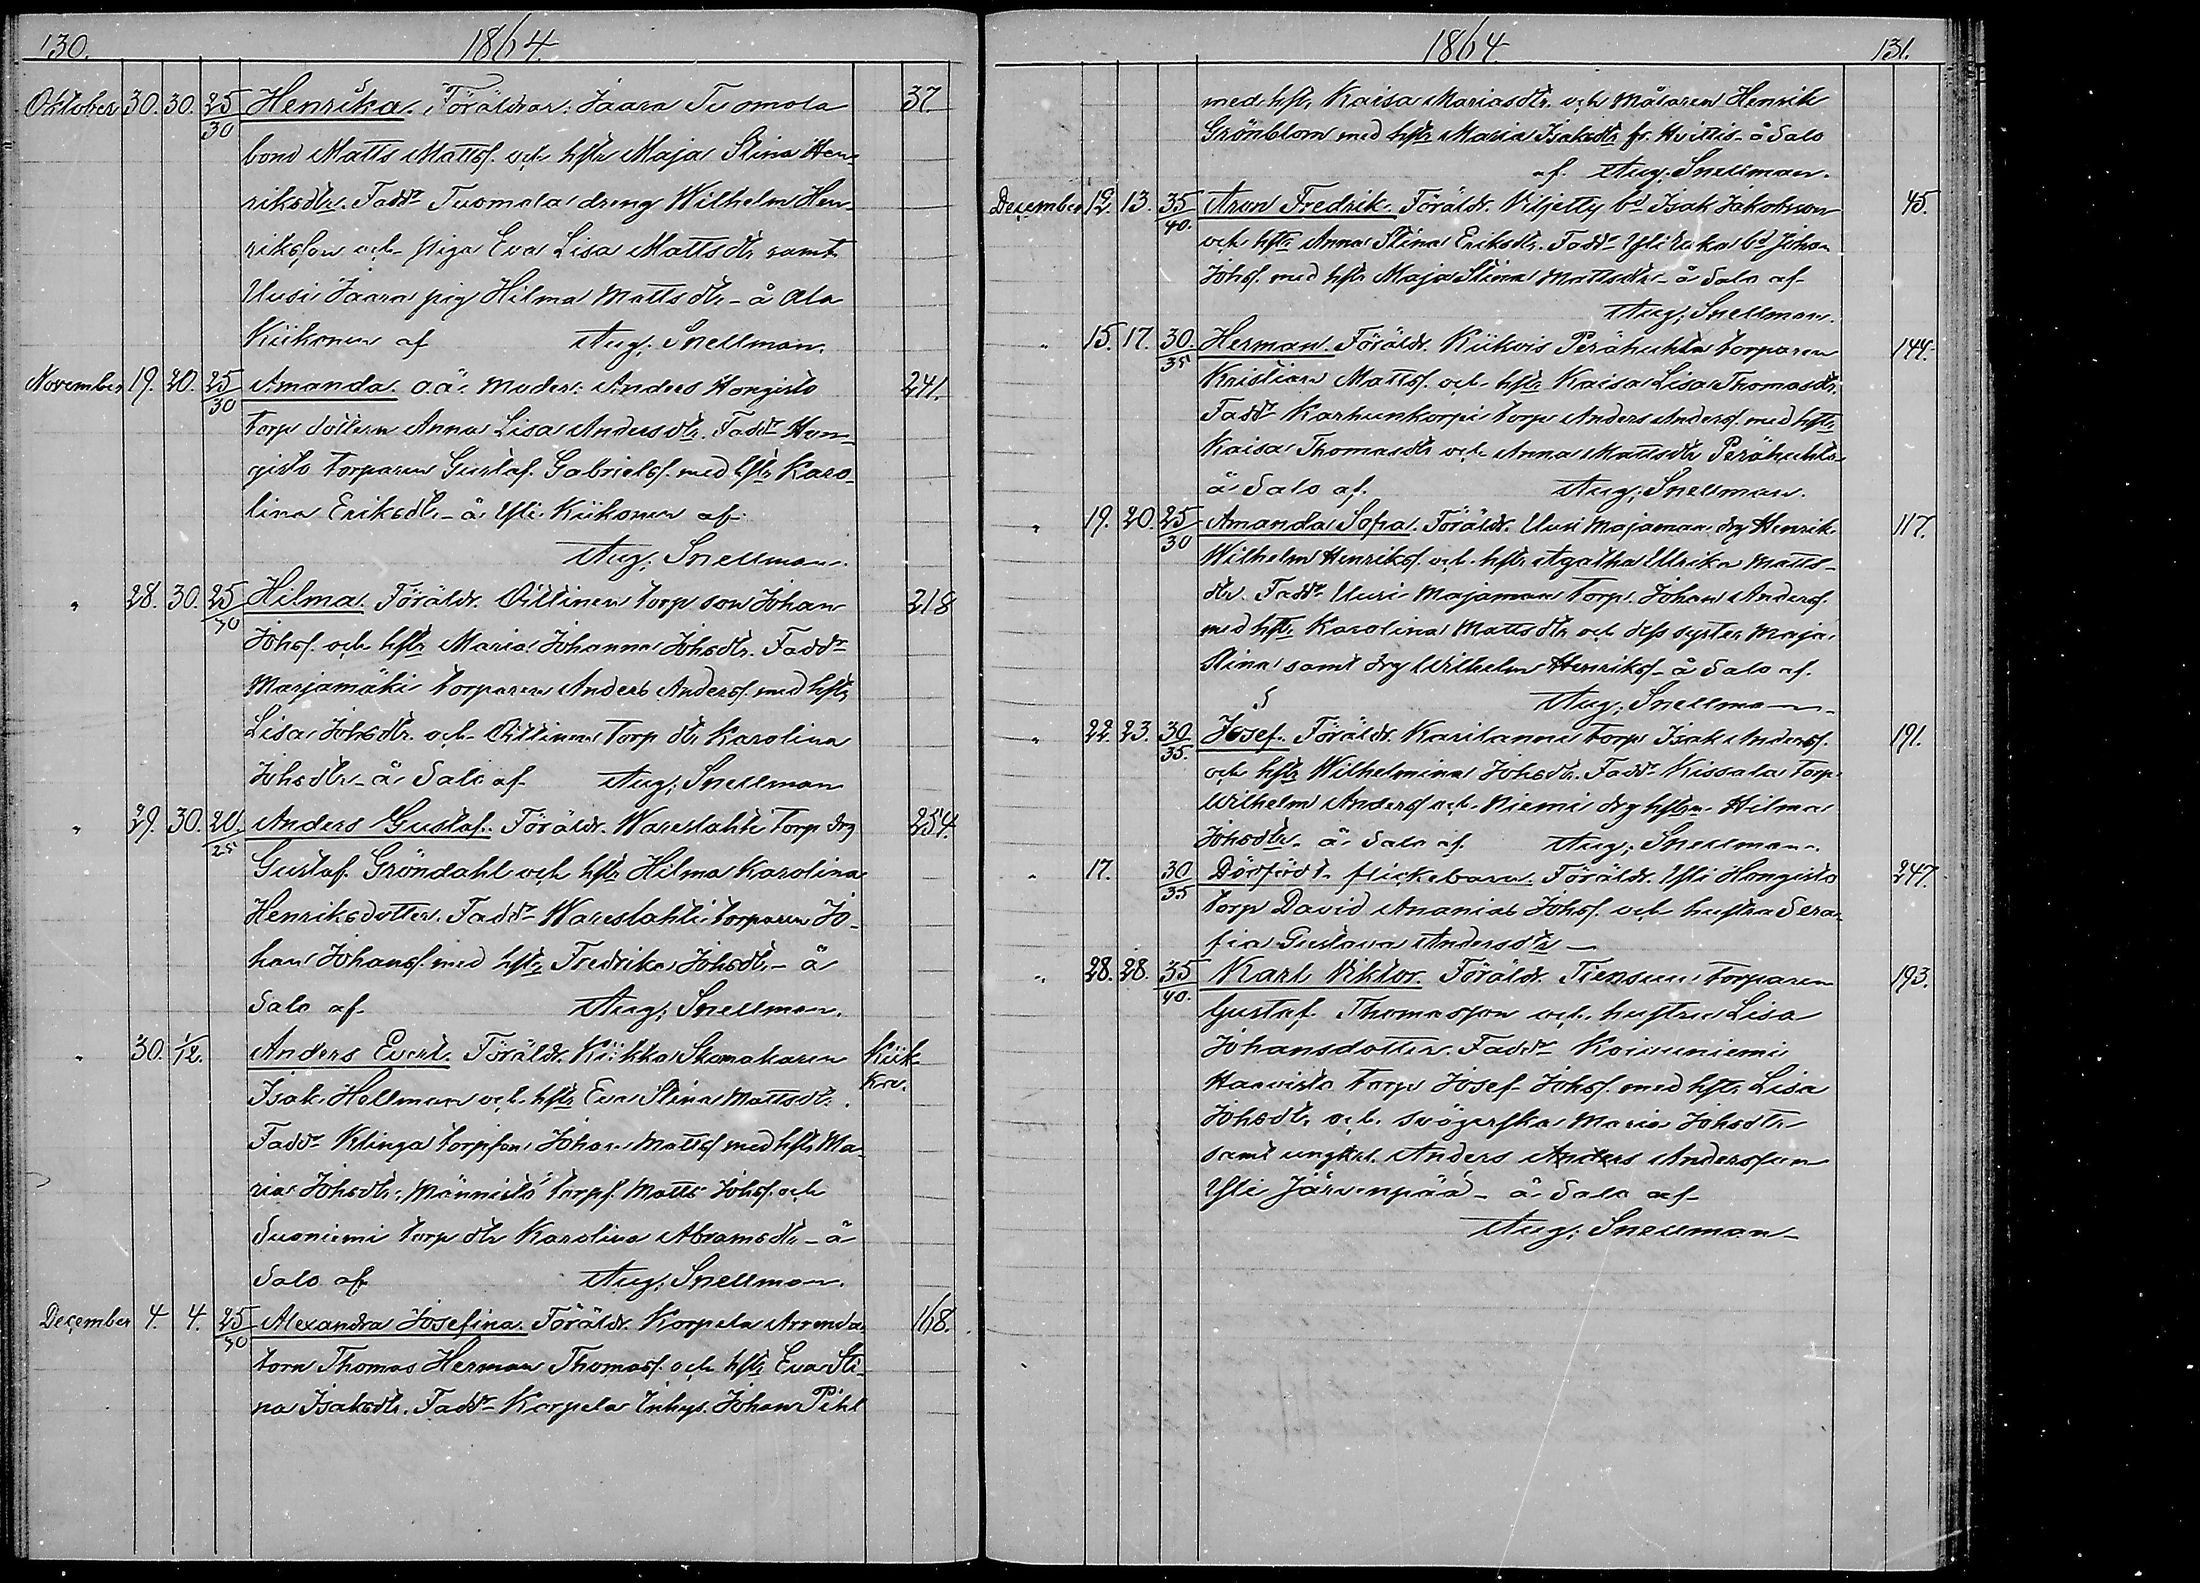 130. 1864.
Oktober 30. 30. 25/30 Henrika. Föräldrar: Jaara Tuomola 37
bond Matts Mattsf. och hstr Maja Stina Hen-
riksdtr. Faddr Tuomola dreng Wilhelm Hen-
riksson och piga Eva Lisa Mattsdtr samt
Uusi Jaara pig Hilma Mattsdtr - å Ala
Kiikonen af Aug; Snellman.
November 19. 20. 25/30 Amanda. o.ä. moder: Anders Hongisto 241.
torp dottern Anna Lisa Andersdtr. Faddr Hon-
gisto torparen Gustaf Gabrielsf. med hstr Karo-
lina Eriksdtr - å Yli Kiikonen af
Aug; Snellman.
" 28. 30. 25/30 Hilma. Föräldr. Oittinen torp son Johan 218
Johsf. och hstr Maria Johanna Johsdtr. Faddr
Marjamäki torparen Anders Andersf. med hstr
Lisa Johsdtr. och Oittinen Torp dtr Karolina
Johsdtr - å Salo af Aug; Snellman
" 29. 30. 20/25 Anders Gustaf. Föräldr. Wareslahti Torp drg 254.
Gustaf Gröndahl och hstr Hilma Karolina
Henriksdotter. Faddr Wareslahti torparen Jo-
han Johansf. med hstr Fredrika Johsdtr - å
Salo af Aug; Snellman.
" 30. 1/12. Anders Evert. Föräldr. Kiikka Skomakaren Kiik-
Isak Hellman och hstr Eva Stina Mattsdtr. ka.
Faddr Klinga torpson Johan Mattsf med hstr Ma-
ria Johsdtr; Männistö torpf. Matts Johsf. och
Suoniemi torp dtr Karolina Abramsdtr - å
Salo af Aug; Snellman.
December 4. 4. 25/30 Alexandra Josefina. Föräldr. Korpela Arrenda- 168.
torn Thomas Herman Thomasf. och hstr Eva Sti-
na Isaksdtr. Faddr Korpela Inhys. Johan Pihl
1864. 131.
med hstr Kaisa Mariasdtr. och Målaren Henrik
Grönblom med hstr Maria Isaksdtr fr. Hvittis - å Salo
af Aug; Snellman.
December 12. 13. 35/40. Aron Fredrik. Föräldr. Viljetty bd Isak Jakobsson 45.
och hstr Anna Stina Eriksdtr. Faddr Yli bd Johan
Johsf. med hstr Maja Stina Mattsdtr - å Salo af
Aug; Snellman.
" 15. 17. 30./35 Herman. Föräldr. Kiikois Perähuhta torparen 144.
Kristian Mattsf. och hstr Kaisa Lisa Thomasdtr.
Faddr Karhunkorpi torp Anders Andersf. med hstr
Kaisa Thomasdtr och Anna Mattsdtr Perähuhta-
å Salo af. Aug; Snellman.
" 19. 20. 25/30 Amanda Sofia. Föräldr. Uusi Majamaa drg Henrik 117.
Wilhelm Henriksf. och hstr Agatha Ulrika Matts-
dtr. Faddr Uusi Majamaa Torp. Johan Andersf.
med hstr Karolina Mattsdtr och dess syster Maja
Stina samt drg Wilhelm Henriksf - å Salo af.
Aug; Snellman.
" 22. 23. 30/35. Josef. Föräldr. Karilanma torp Isak Andersf. 191.
och hstr Wilhelmina Johsdtr. Faddr Kissala torp.
Wilhelm Andersf och Niemi drg hstrn Hilma
Johsdtr - å Salo af Aug; Snellman.
" 17. 30/35 Dödfödt flickebarn. Föräldr. Yli Hongisto 247.
torp David Ananias Johsf. och hustru Sera-
fia Gustava Andersdtr -
" 28. 28. 35/40. Karl Viktor. Föräldr. Tiensuu torparen 193.
Gustaf Thomasson och hustru Lisa
Johansdotter. Faddr Koivuniemi
Haavisto torp Josef Johsf. med hstr Lisa
Johsdtr och svägerska Maria Johsdtr
samt ungkrl. Anders Anders Andersson
Yli Järvenpää - å Salo af
Aug; Snellman -